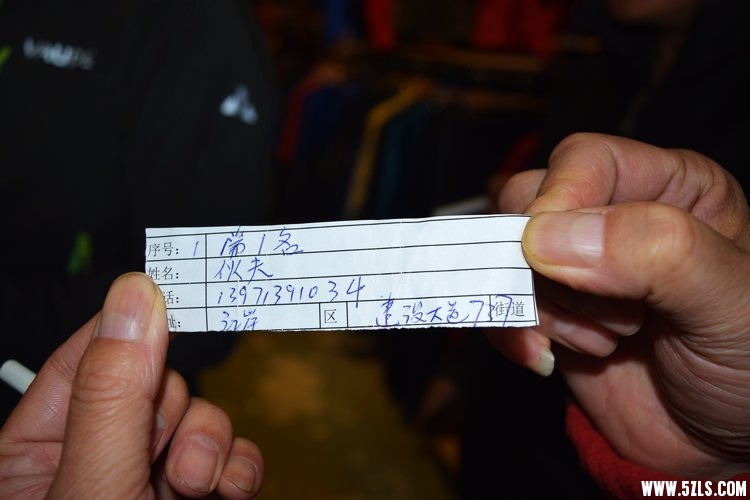 VAUDE
序号: 1 第1名
姓名: 伙夫
话: 13971391034
址: 江岸 区 建设大道737 街道
WWW.5ZLS.COM